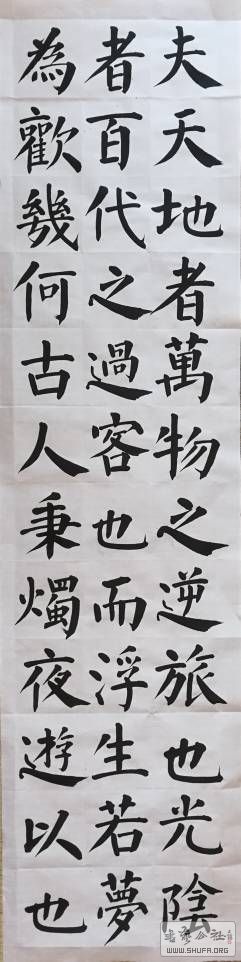 夫天地者萬物之逆旅也光陰
者百代之過客也而浮生若夢
為歡幾何古人秉燭夜遊以也
WWW.SHUFA.ORG